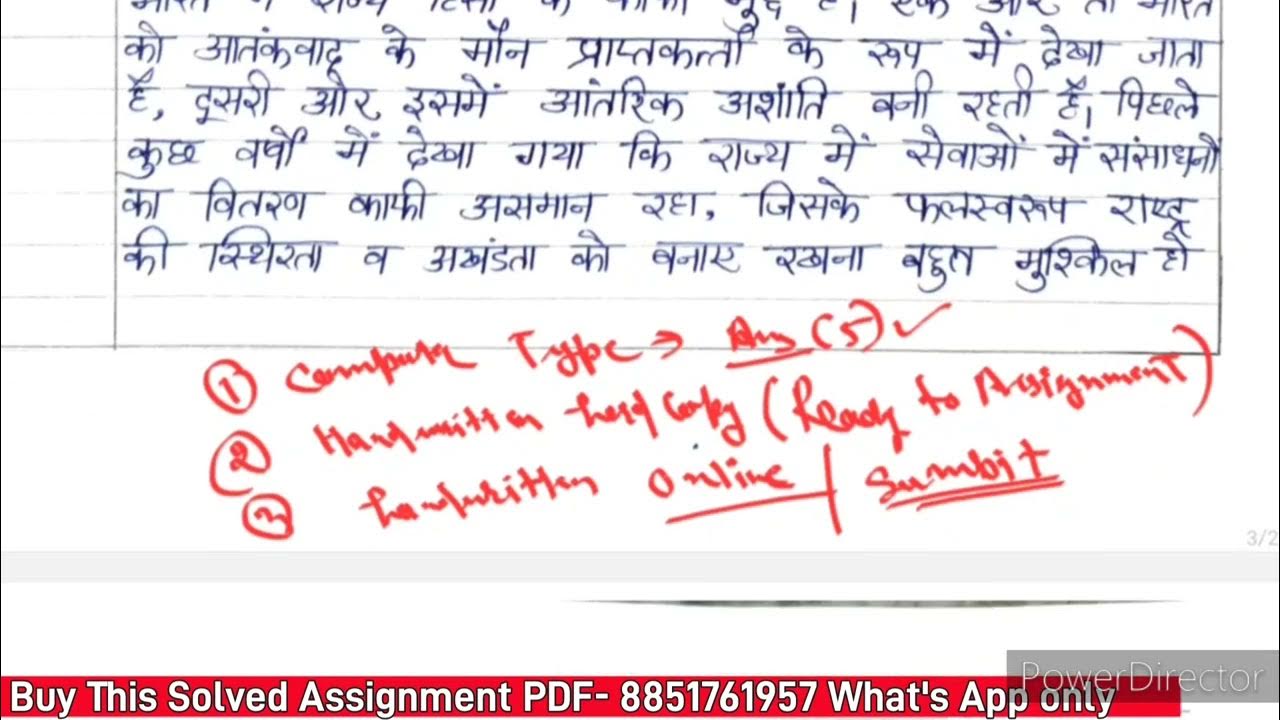 भारत में राज्य हिंसा के काफी मुद्दे हैं। एक ओर तो भारत
को आतंकवाद के मौन प्राप्तकर्त्ता के रूप में देखा जाता
है, दूसरी ओर इसमें आंतरिक अशांति बनी रहती है। पिछले
कुछ वर्षों में देखा गया कि राज्य में सेवाओं में संसाधनों
का वितरण काफी असमान रहा, जिसके फलस्वरूप राष्ट्र
की स्थिरता व अखंडता को बनाए रखना बहुत मुश्किल हो
① Computer Type → Ans (5) ✓
② Handwritten hard copy (Ready to Assignment)
③ handwritten Online / Sumbit
3/2
PowerDirector
Buy This Solved Assignment PDF- 8851761957 What's App only